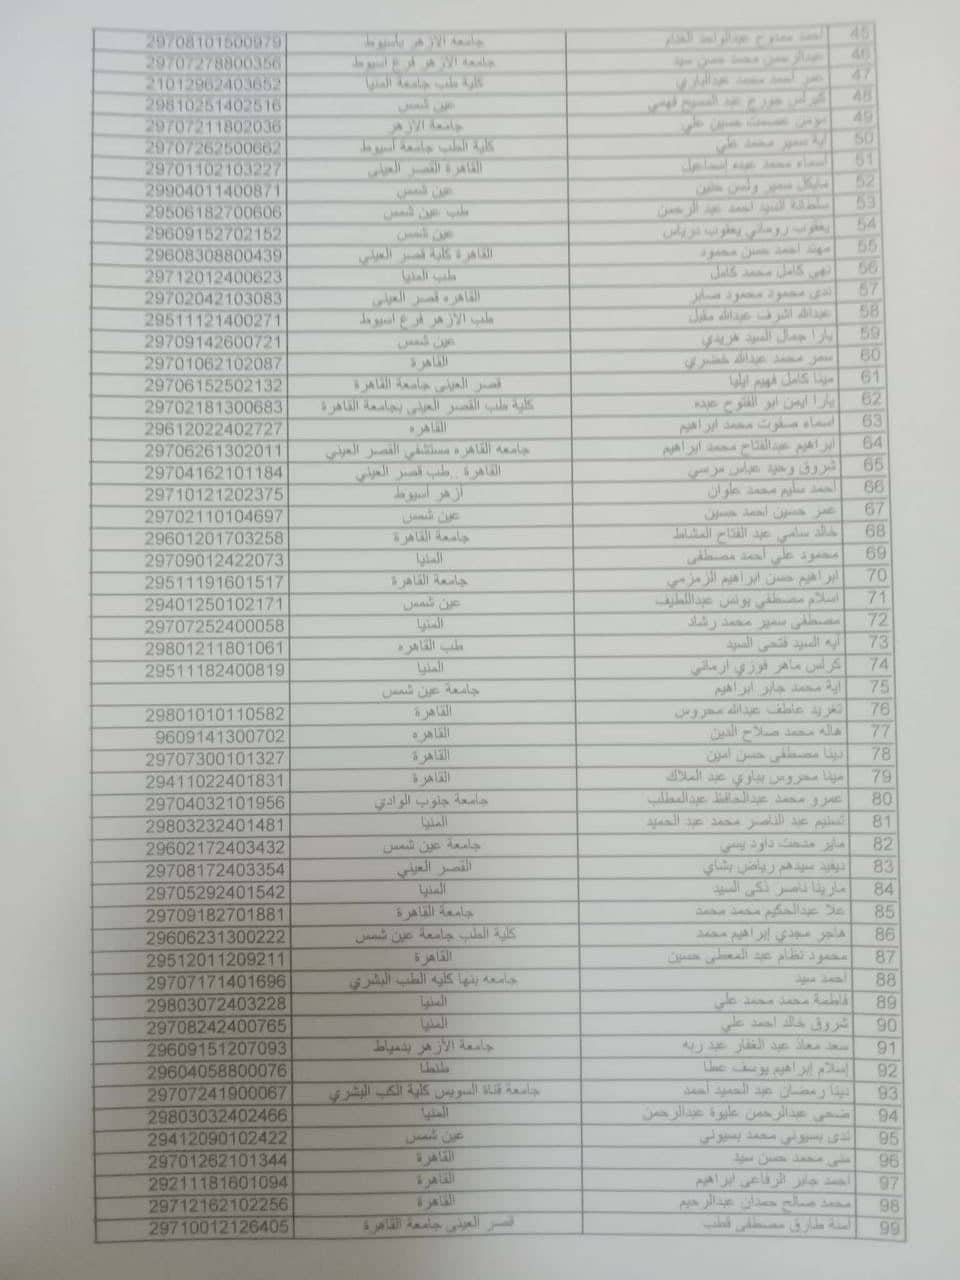 45 احمد ممدوح عبدالواحد الخدام جامعه الازهر باسيوط 29708101500979
46 عبدالرحمن محمد حسن سيد جامعه الازهر فرع اسيوط 29707278800356
47 عمر احمد محمد عبدالباري كلية طب جامعة المنيا 21012962403652
48 كيرلس جورج عبد المسيح فهمي عين شمس 29810251402516
49 عصمت حسين علي جامعة الازهر 29707211802036
50 اية سمير محمد علي كلية الطب جامعة اسيوط 29707262500662
51 اسماء محمد عبده إسماعيل القاهرة القصر العينى 29701102103227
52 مايكل سمير ونس حنين عين شمس 29904011400871
53 سلطانة السيد احمد عبد الرحمن طب عين شمس 29506182700606
54 يعقوب روماني يعقوب درياس عين شمس 29609152702152
55 مهند احمد حسن محمود القاهرة كلية قصر العيني 29608308800439
56 نهي كامل محمد كامل طب المنيا 29712012400623
57 ندى محمود محمود صابر القاهره قصر العينى 29702042103083
58 عبدالله اشرف عبدالله مقبل طب الازهر فرع اسيوط 29511121400271
59 يارا جمال السيد هريدي عين شمس 29709142600721
60 سمر محمد عبدالله خضري القاهرة 29701062102087
61 مينا كامل فهيم ايليا قصر العينى جامعة القاهرة 29706152502132
62 يارا ايمن ابو الفتوح عبده كلية طب القصر العينى بجامعة القاهرة 29702181300683
63 اسماء صفوت محمد ابراهيم القاهره 29612022402727
64 ابراهيم عبدالفتاح محمد ابراهيم جامعه القاهره مستشفي القصر العيني 29706261302011
65 شروق وحيد عباس مرسي القاهرة ..طب قصر العيني 29704162101184
66 احمد سليم محمد علوان ازهر اسيوط 29710121202375
67 عمر حسين احمد حسين عين شمس 29702110104697
68 خالد سامي عبد الفتاح المشاط جامعة القاهرة 29601201703258
69 محمود علي احمد مصطفى المنيا 29709012422073
70 ابراهيم حسن ابراهيم الزمزمي جامعة القاهرة 29511191601517
71 اسلام مصطفي يونس عبداللطيف عين شمس 29401250102171
72 مصطفى سمير محمد رشاد المنيا 29707252400058
73 ايه السيد فتحى السيد طب القاهره 29801211801061
74 كرلس ماهر فوزي ارماني المنيا 29511182400819
75 اية محمد جابر ابراهيم جامعة عين شمس
76 تغريد عاطف عبدالله محروس القاهرة 29801010110582
77 هاله محمد صلاح الدين القاهره 9609141300702
78 دينا مصطفى حسن امين القاهرة 29707300101327
79 مينا محروس بباوي عبد الملاك القاهرة 29411022401831
80 عمرو محمد عبدالحافظ عبدالمطلب جامعة جنوب الوادي 29704032101956
81 تسنيم عبد الناصر محمد عبد الحميد المنيا 29803232401481
82 ماير مدحت داود يسي جامعة عين شمس 29602172403432
83 ديفيد سيدهم رياض بشاي القصر العيني 29708172403354
84 مارينا ناصر ذكى السيد المنيا 29705292401542
85 علا عبدالحكيم محمد محمد جامعة القاهرة 29709182701881
86 هاجر مجدي إبراهيم محمد كلية الطب جامعة عين شمس 29606231300222
87 محمود نظام عبد المعطى حسين القاهرة 29512011209211
88 احمد سيد جامعه بنها كليه الطب البشري 29707171401696
89 فاطمة محمد محمد علي المنيا 29803072403228
90 شروق خالد احمد علي المنيا 29708242400765
91 سعد معاذ عبد الغفار عبد ربه جامعة الأزهر بدمياط 29609151207093
92 إسلام إبراهيم يوسف عطا طنطا 29604058800076
93 دينا رمضان عبد الحميد احمد جامعة قناة السويس كلية الكب البشري 29707241900067
94 ضحى عبدالرحمن عليوة عبدالرحمن المنيا 29803032402466
95 ندى بسيوني محمد بسيوني عين شمس 29412090102422
96 منى محمد حسن سيد القاهرة 29701262101344
97 احمد جابر الرفاعى ابراهيم القاهرة 29211181601094
98 محمد صالح حمدان عبدالرحيم القاهرة 29712162102256
99 امنة طارق مصطفى قطب قصر العينى جامعة القاهرة 29710012126405